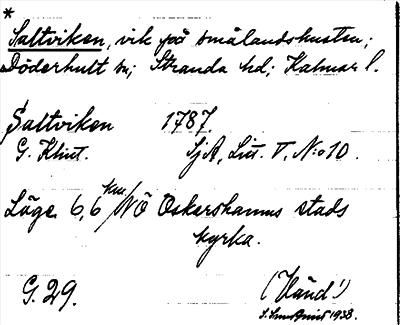 *
Saltviken, vik på smålandskusten;
Döderhult sn; Stranda hd; Kalmar l.
Saltviken 1787.
G. Klint. SjA, Litt. V, N:o 10.
Läge 6,6 km NÖ Oskarshamns stads
kyrka.
G. 29. (Händ!)
1938